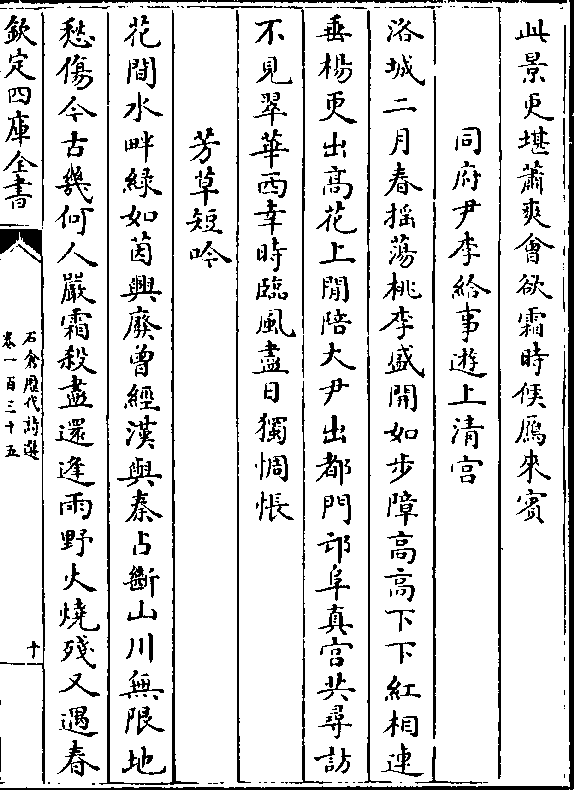 此景更堪蕭爽會欲霜時候鴈來賓
同府尹李給事遊上清宫
洛城二月春揺蕩桃李盛開如步障高高下下紅相連
垂楊更出髙花上閒陪大尹出都門邙阜真宫共尋訪
不見翠華西幸時臨風盡日獨惆悵
芳草短吟
花間水畔緑如茵興廢曾經漢與秦占斷山川無限地
愁傷今古幾何人嚴霜殺盡還逢雨野火燒殘又遇春
欽定四庫全書
石倉歴代詩選
卷一百三十五
十